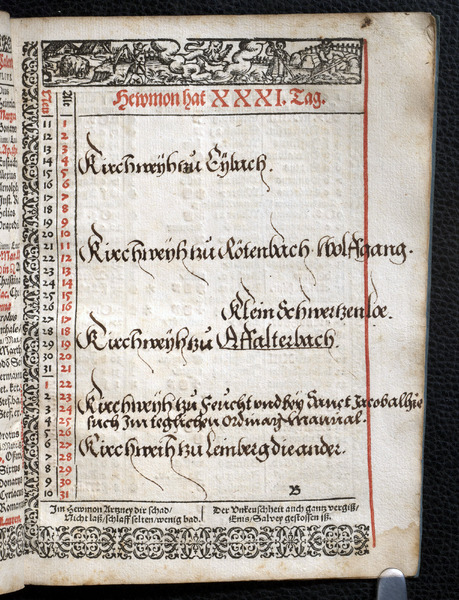 Hewmon hat XXXI. Tag.
New
Alt
11 1
12 2
13 3
14 4
Kirchweÿh zu Eÿbach.
15 5
16 6
17 7
18 8
19 9
20 10
21 11
Kirchweÿh zu Rötenbach Wolffgang.
22 12
23 13
24 14
25 15
26 16
27 17
Klein Schwertzenloe.
28 18
29 19
Kirchweÿh zu Affalterbach.
30 20
31 21
1 22
2 23
3 24
Kirchweÿh zu Feucht vnd beÿ Sanct Jacob alhie
4 25
such Im teglichen ordinarÿ Manual.
5 26
6 27
Kirchweih zu Lemberg die ander.
7 28
8 29
9 30
10 31
B
Im Hewmon Artzney dir schad/
Nicht laß/schlaff selten/wenig bad.
Der Vnkeuschheit auch gantz vergiß/
Enis/Salvey gestossen iß.